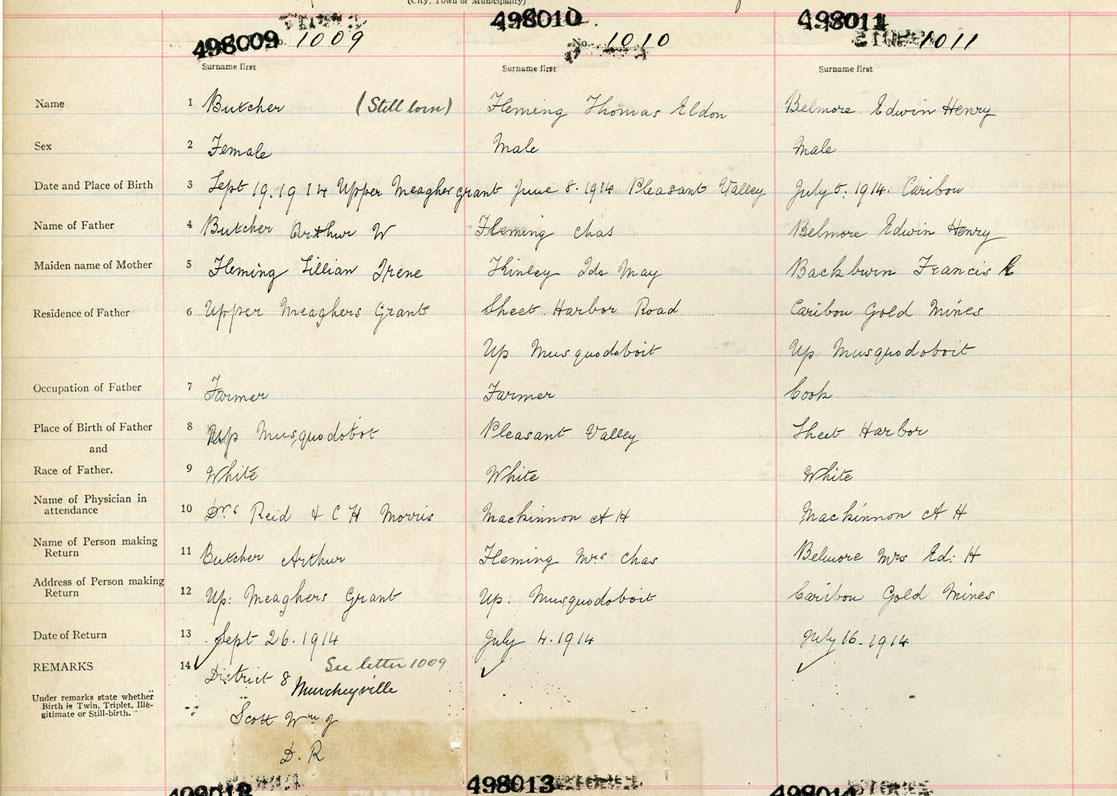 (City, Town or Municipality)
498009 No. 1009 498010 No. 1010 498011 1011
Surname first Surname first Surname first
Name 1 Butcher (Still born) Fleming Thomas Eldon Belmore Edwin Henry
Sex 2 Female Male Male
Date and Place of Birth 3 Sept 19.1914 Upper Meagher grant June 8.1914 Pleasant Valley July 5.1914. Caribou
Name of Father 4 Butcher Arthur W Fleming Chas Belmore Edwin Henry
Maiden name of Mother 5 Fleming Lillian Irene Ida May Francis
Residence of Father 6 Upper Meaghers Grant Sheet Harbor Road Caribou Gold Mines
Up Musquodoboit Up Musquodoboit
Occupation of Father 7 Farmer Farmer Cook
Place of Birth of Father 8 Up Musquodobot Pleasant Valley Sheet Harbor
and
Race of Father. 9 White White White
Name of Physician in
attendance 10 Drs Reid & C H Morris Mackinnon A H Mackinnon A H
Name of Person making
Return 11 Butcher Arthur Fleming Mrs Chas Belmore Mrs Ed. H
Address of Person making
Return 12 Up: Meaghers Grant Up: Musquodoboit Caribou Gold Mines
Date of Return 13 Sept 26.1914 July 4.1914 July 16.1914
REMARKS 14 District 8 See letter 1009
Under remarks state whether
Birth is Twin, Triplet, Ille-
gitimate or Still-birth.
Murcheyville
Scott Wm J
D. R
498013